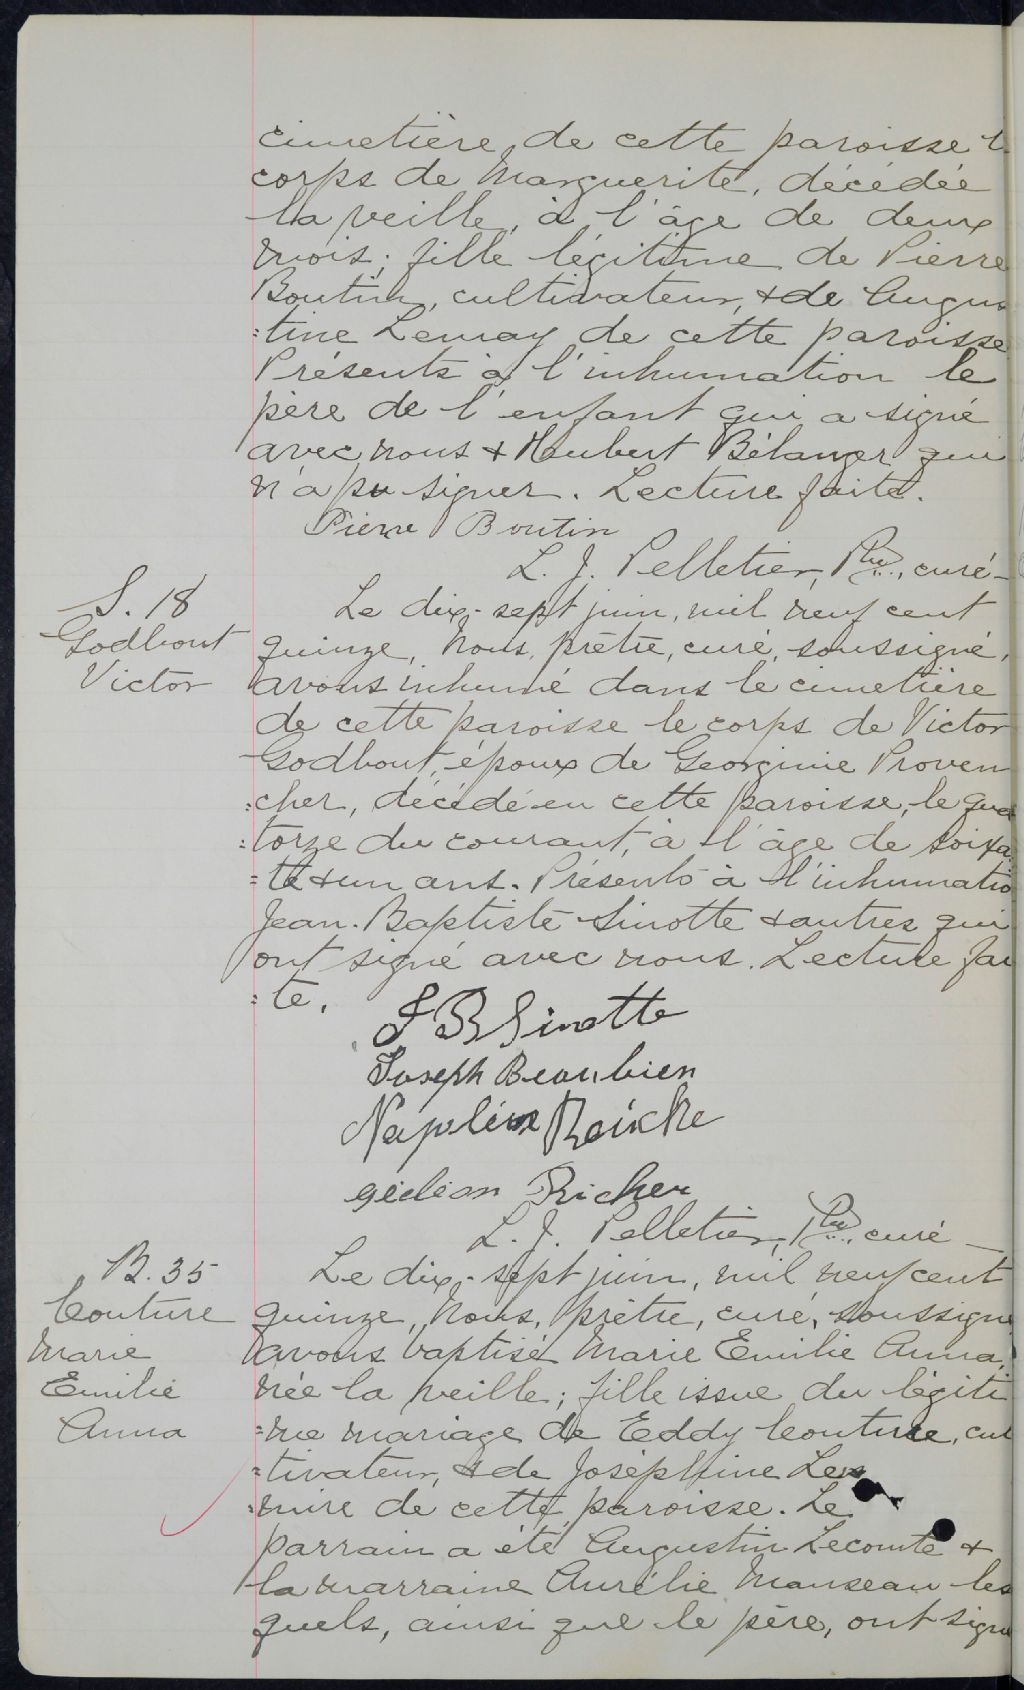 cimetière de cette paroisse
corps de Marguerite, décédée
la veille, à l'âge de deux
mois; fille légitime de Pierre
Boutin, cultivateur, & de Augus
=tine Lemay de cette paroisse
Présents à l'inhumation le
père de l'enfant qui a signé
avec nous & Houbert Bélanger qui
n'a pu signer. Lecture faite.
Pierre Boutin
L. J. Pelletier, Ptre., curé-
S. 18
Godbout
Victor
Le dix-sept juin, mil neuf cent
quinze, Nous, prêtre, curé, soussigné,
avons inhumé dans le cimetière
de cette paroisse le corps de Victor
Godbout, époux de Georginie Proven
=cher, décédé en cette paroisse, le qua
=torze du courant, à l'âge de soixa
=te & un ans. Présents à l'inhumatio
Jean-Baptiste Sinotte & autres qui
ont signé avec nous. Lecture fai
=te.
J B Sinotte
Joseph Beaubien
Napoléon
gédéon Richer
L. J. Pelletier, Ptre., curé-
B. 35
Couture
Marie
Emilie
Anna
Le dix-sept juin, mil neuf cent
quinze, Nous, prêtre, curé, soussigné
avons baptisé Marie Emilie Anna,
née la veille; fille issue du légiti
=me mariage de Eddy Couture, cul
=tivateur, & de Joséphine Le
=mire de cette paroisse. Le
parrain a été Augustin Lecomte &
la marraine Aurélie Manseau les
quels, ainsi que le père, ont signé